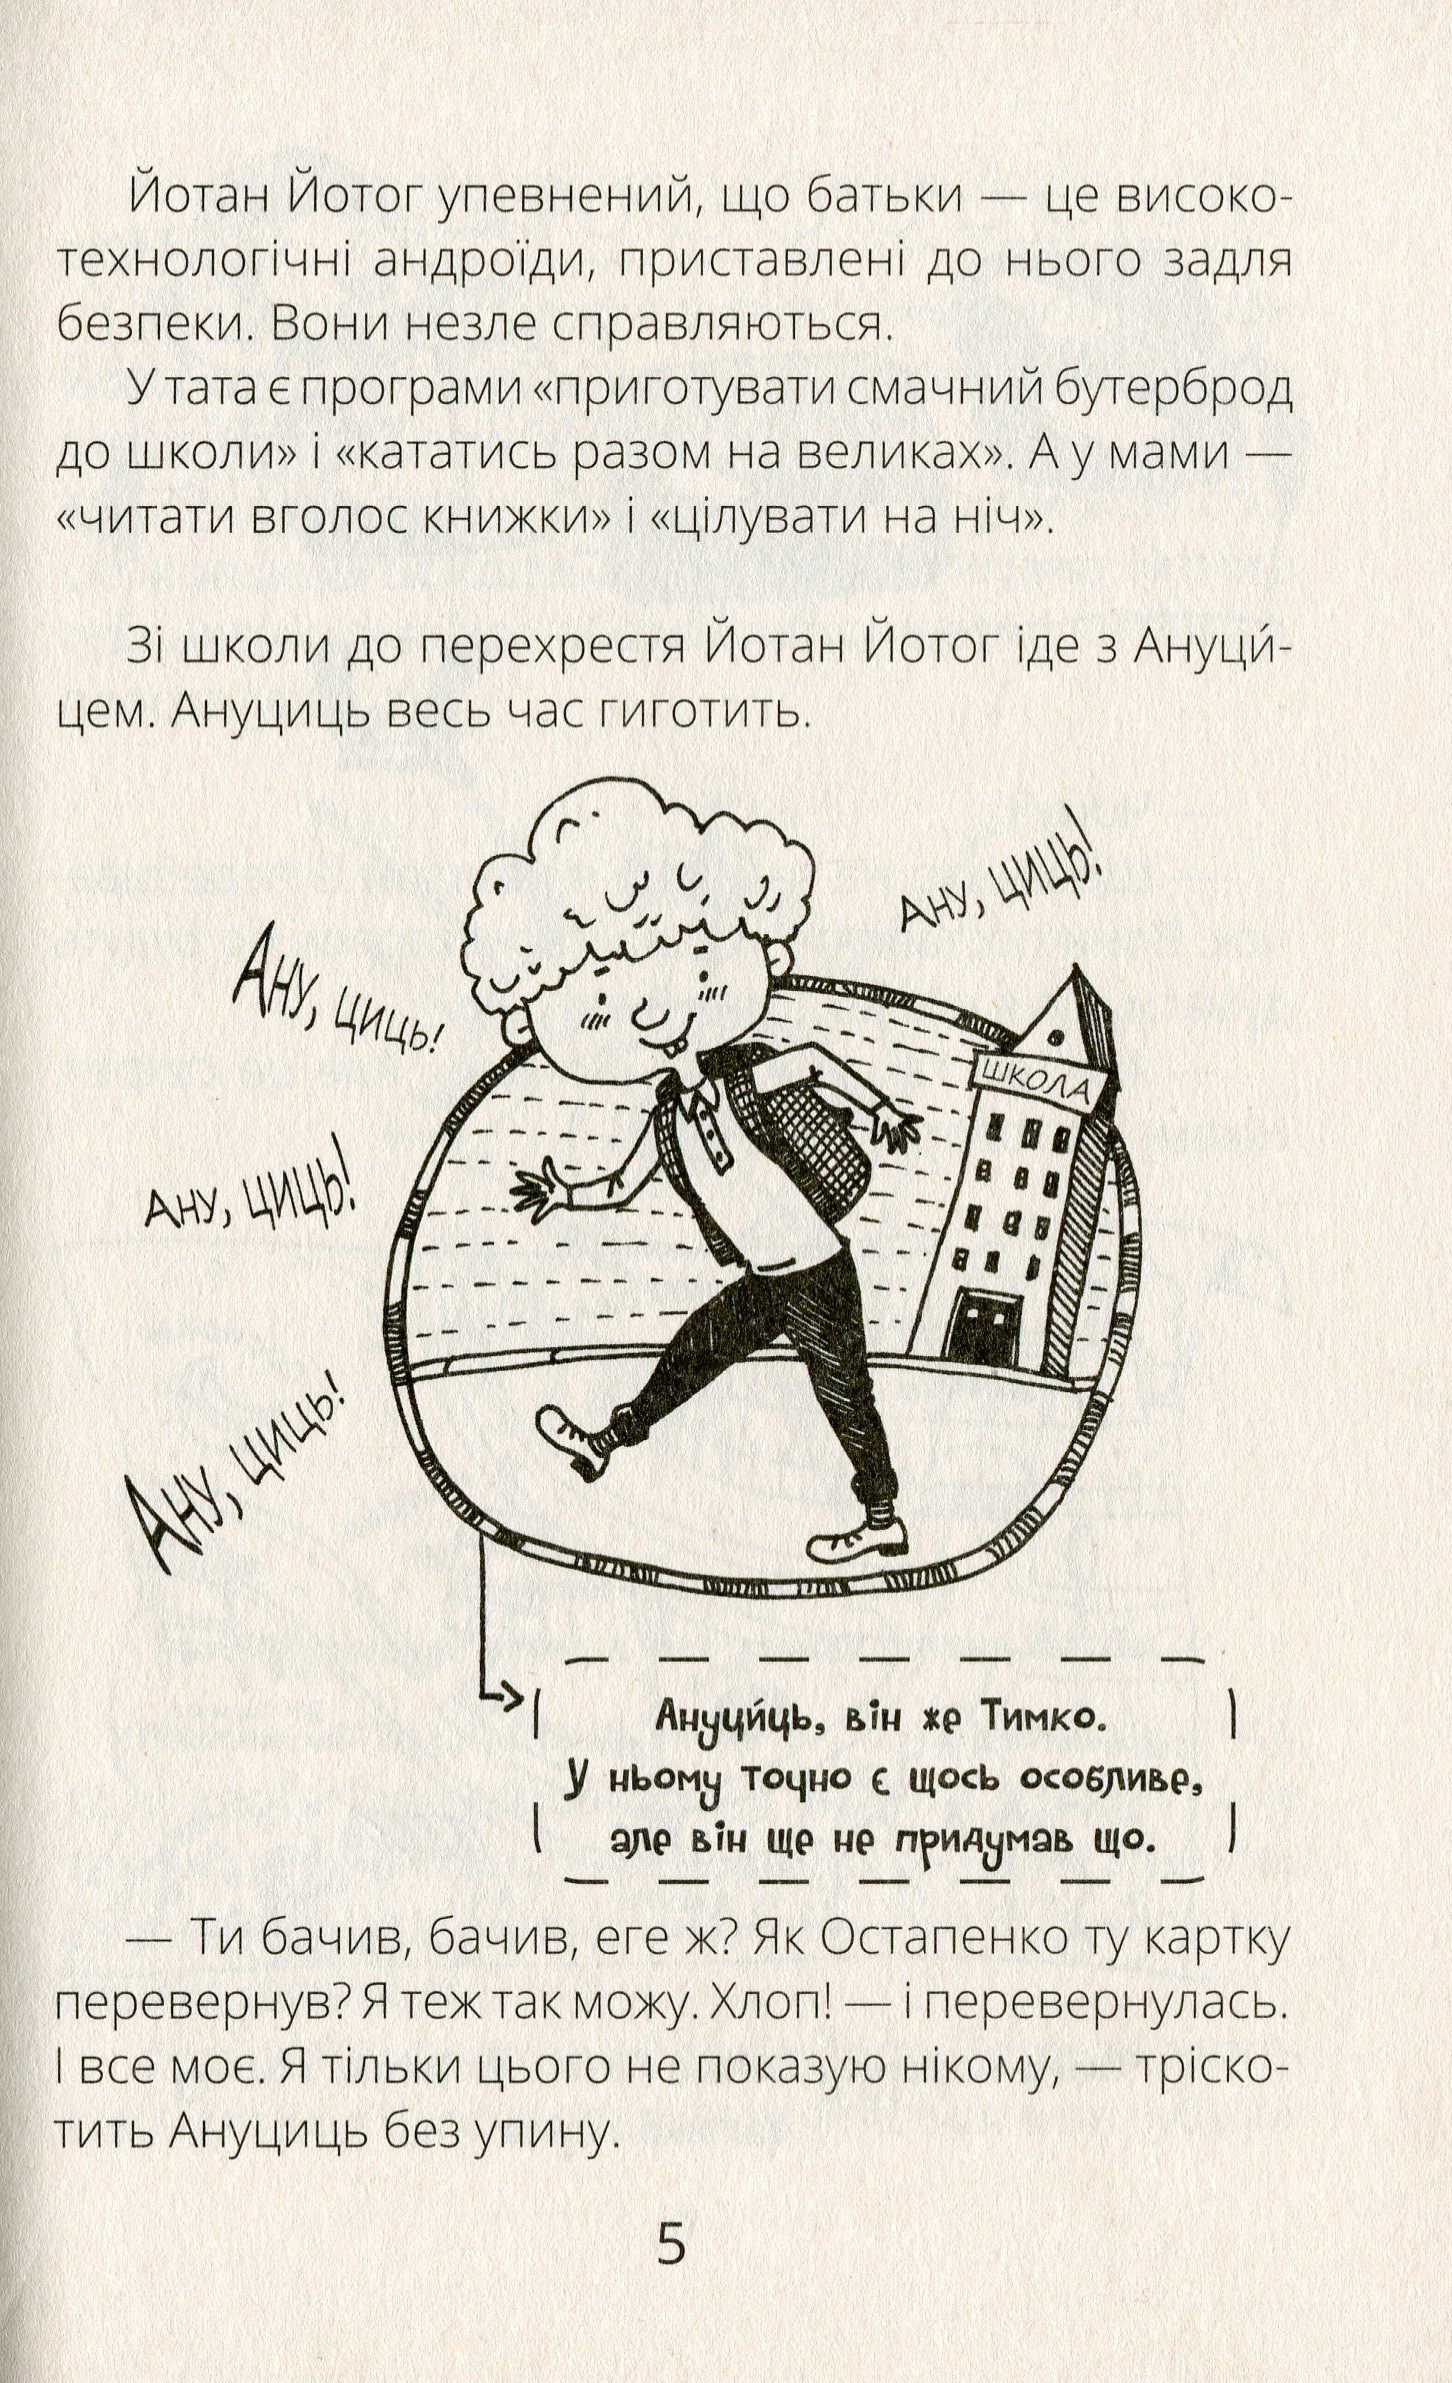 Йотан Йотог упевнений, що батьки — це високо-
технологічні андроїди, приставлені до нього задля
безпеки. Вони незле справляються.
У тата є програми «приготувати смачний бутерброд
до школи» і «кататись разом на великах». А у мами —
«читати вголос книжки» і «цілувати на ніч».
Зі школи до перехрестя Йотан Йотог іде з Ануци́-
цем. Ануциць весь час гиготить.
Ану, циць!
Ану, циць!
ШКОЛА
Ану, циць!
Ану, циць!
Ануци́ць, він же Тимко.
У ньому точно є щось особливе,
але він ще не придумав що.
— Ти бачив, бачив, еге ж? Як Остапенко ту картку
перевернув? Я теж так можу. Хлоп! — і перевернулась.
І все моє. Я тільки цього не показую нікому, — тріско-
тить Ануциць без упину.
5